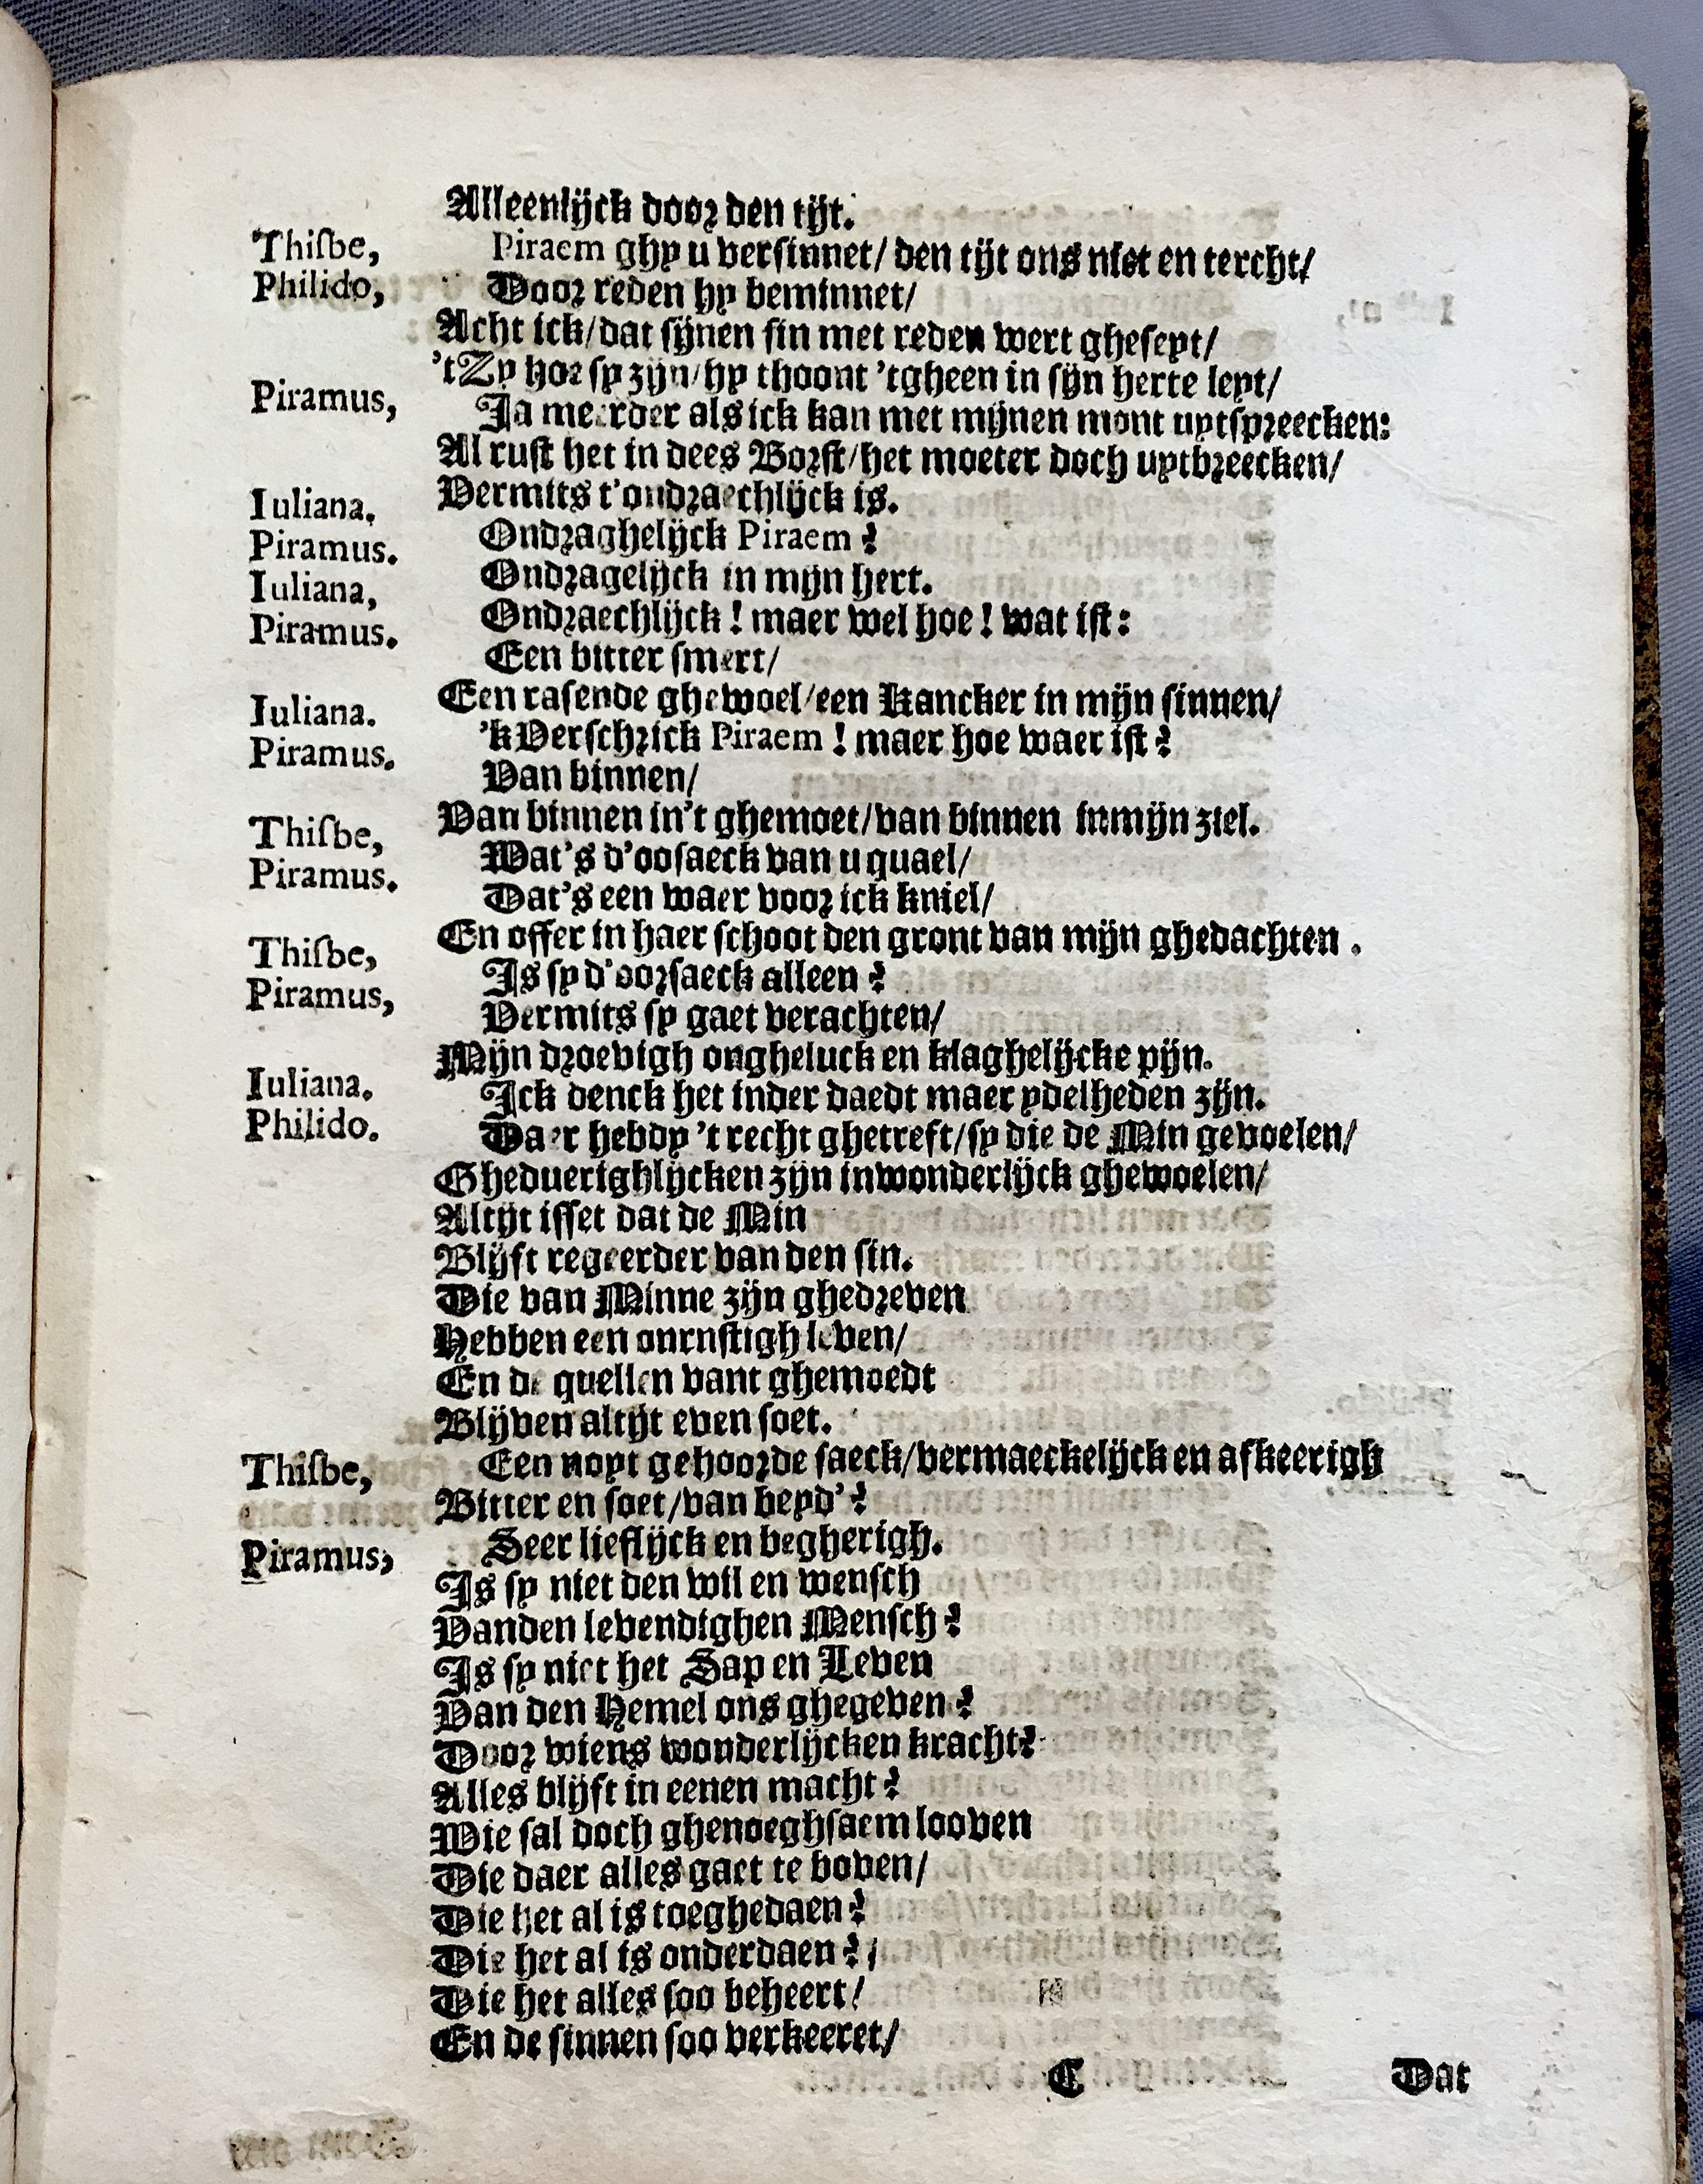 Alleenlijck door den tijt.
Thisbe, Piraem ghy u versinnet/ den tijt ons niet en tercht/
Philido, Door reden hy beminnet/
Acht ick/dat sijnen sin met reden wert gheseyt/
'tZy hoe sy zijn/hy thoont 'tgheen in sijn herte leyt/
Piramus, Ja meerder als ick kan met mijnen mont uytspreecken:
Al rust het in dees Borst/het moeter doch uytbreecken/
Vermits t'ondraechlijck is.
Iuliana. Ondraghelijck Piraem?
Piramus. Ondragelijck in mijn hert.
Iuliana, Ondraechlijck! maer wel hoe! wat ist:
Piramus. Een bitter smert/
Een rasende ghewoel/een Kancker in mijn sinnen/
Iuliana. 'kVerschrick Piraem! maer hoe waer ist?
Piramus. Van binnen/
Van binnen in't ghemoet/van binnen inmijn ziel.
Thisbe, Wat's d'oosaeck van u quael/
Piramus. Dat's een waer voor ick kniel/
En offer in haer schoot den gront van mijn ghedachten.
Thisbe, Is sy d'oorsaeck alleen?
Piramus, Vermits sy gaet verachten/
Mijn droevigh ongheluck en klaghelijcke pijn.
Iuliana. Ick denck het inder daedt maer ydelheden zijn.
Philido. Daer hebdy 't recht ghetreft/sy die de Min gevoelen/
Gheduerighlijcken zijn inwonderlijck ghewoelen/
Altijt isset dat de Min
Blijft regeerder van den sin.
Die van Minne zijn ghedreven
Hebben een onrnstigh leven/
En de quellen vant ghemoedt
Blijven altijt even soet.
Thisbe, Een noyt gehoorde saeck/vermaeckelijck en afkeerigh
Bitter en soet/van beyd'?
Piramus, Seer lieflijck en begherigh.
Is sy niet den wil en wensch
Vanden levendighen Mensch?
Is sy niet het Sap en Leven
Van den Hemel ons ghegeven?
Door wiens wonderlijcken kracht?
Alles blijft in eenen macht?
Wie sal doch ghenoeghsaem looven
Die daer alles gaet te boven/
Die het al is toeghedaen?
Die het al is onderdaen?/
Die het alles soo beheert/
En de sinnen soo verkeeret/
C Dat